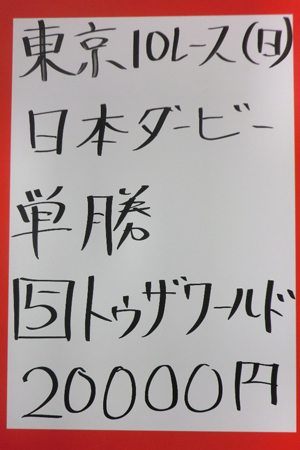 東京10レース(日)
日本ダービー
単勝
5トゥザワールド
20000円